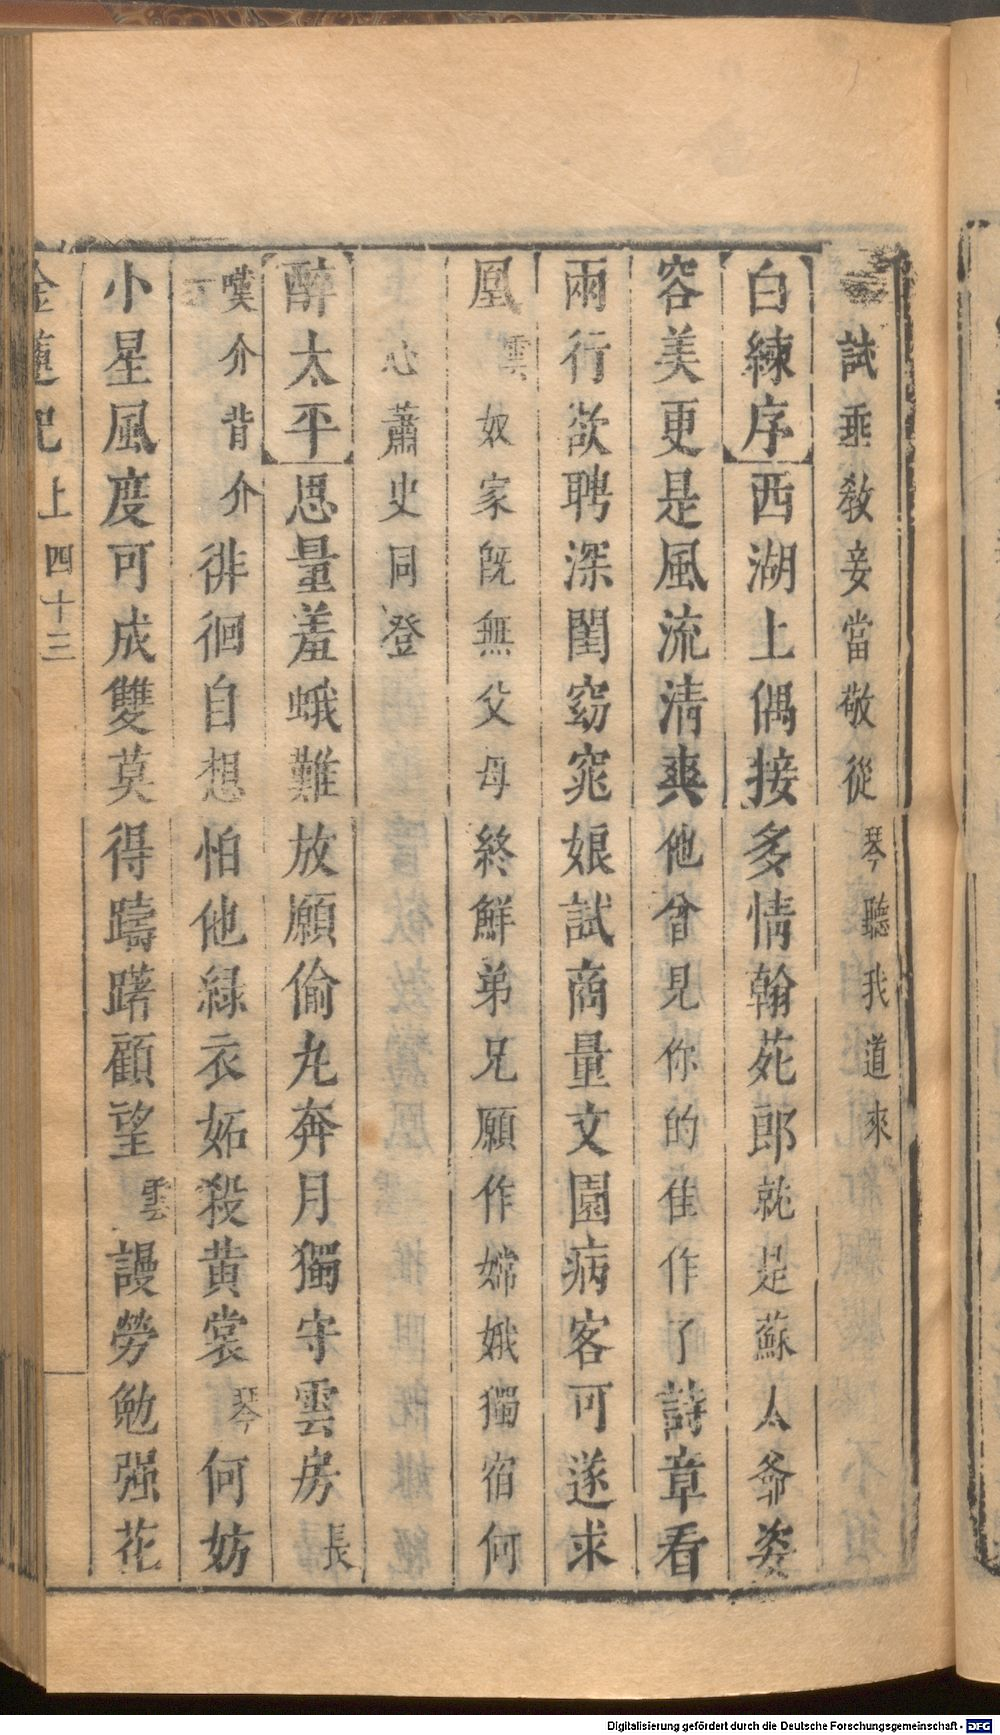 試垂教妾當敬從琴聽我道來
白練序西湖上偶接多情翰苑郎就是蘇太爺姿
容美更是風流清爽他曾見你的佳作了詩章看
兩行欲聘深閨窈窕娘試商量文園病客可遂求
凰雲奴家旣無父母終鮮弟兄願作嫦娥獨宿何
心蕭史同登
醉太平思量羞蛾難放願偷丸奔月獨守雲房長
嘆介背介徘徊自想怕他緑衣妬殺黄裳琴何妨
小星風度可成雙莫得躊躇顧望雲謾勞勉强花
金蓮記上四十三
Digitalisierung gefördert durch die Deutsche Forschungsgemeinschaft - DFG